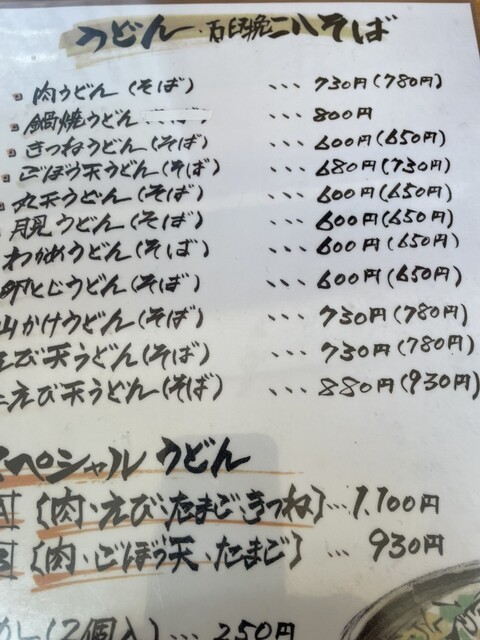 うどん・石臼挽二八そば
肉うどん(そば) ... 730円(780円)
鍋焼うどん ... 800円
きつねうどん(そば) ... 600円(650円)
ごぼう天うどん(そば) ... 680円(730円)
丸天うどん(そば) ... 600円(650円)
月見うどん(そば) ... 600円(650円)
わかめうどん(そば) ... 600円(650円)
卵とじうどん(そば) ... 600円(650円)
山かけうどん(そば) ... 730円(780円)
えび天うどん(そば) ... 730円(780円)
えび天うどん(そば) ... 880円(930円)
スペシャルうどん
A [肉・えび・たまご・きつね] ... 1,100円
B [肉・ごぼう天・たまご] ... 930円
(2個入) ... 250円